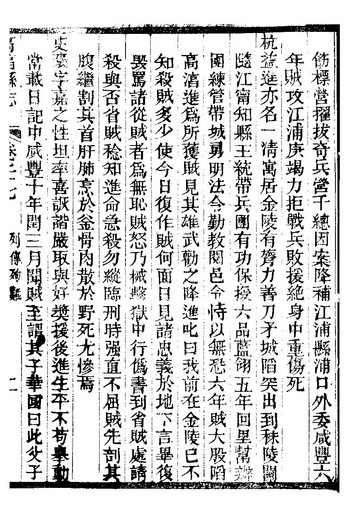 飭標營擢拔奇兵營千總因案降補江浦縣浦口外委咸豐六
年賊攻江浦庚竭力拒戰兵敗援絶身中重傷死
杭益進亦名一清寓居金陵有膂力善刀矛城陷突出到秣陵關
隨江甯知縣王統帶兵團有功保授六品藍翎五年回里幫辦
團練管帶城勇明法令勤教閱邑令恃以無恐六年賊大股陷
高湻進爲所獲賊見其雄武勸之降進叱曰我前在金陵已不
知殺賊多少使今日復作賊何面目見諸忠義於地下言畢復
毁罵諸從賊者爲無恥賊怒乃械繫獄中行僞書到省賊處請
殺與否省賊稔知進命急殺勿縱臨刑時强直不屈賊先剖其
腹繼割其首肝肺烹於釜骨肉散於野死尤慘焉
史 字嘉之性坦率喜詼諧嚴取與好奬援後進生平不苟舉動
嘗載日記中咸豐十年閏三月聞賊至謂其子華國曰此父子
高湻縣志 卷之十七 列傳殉難 二